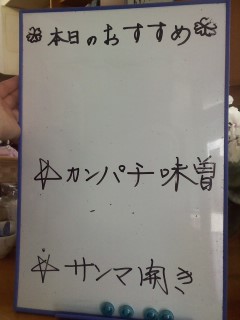 本日のおすすめ
☆カンパチ味噌
☆サンマ開き